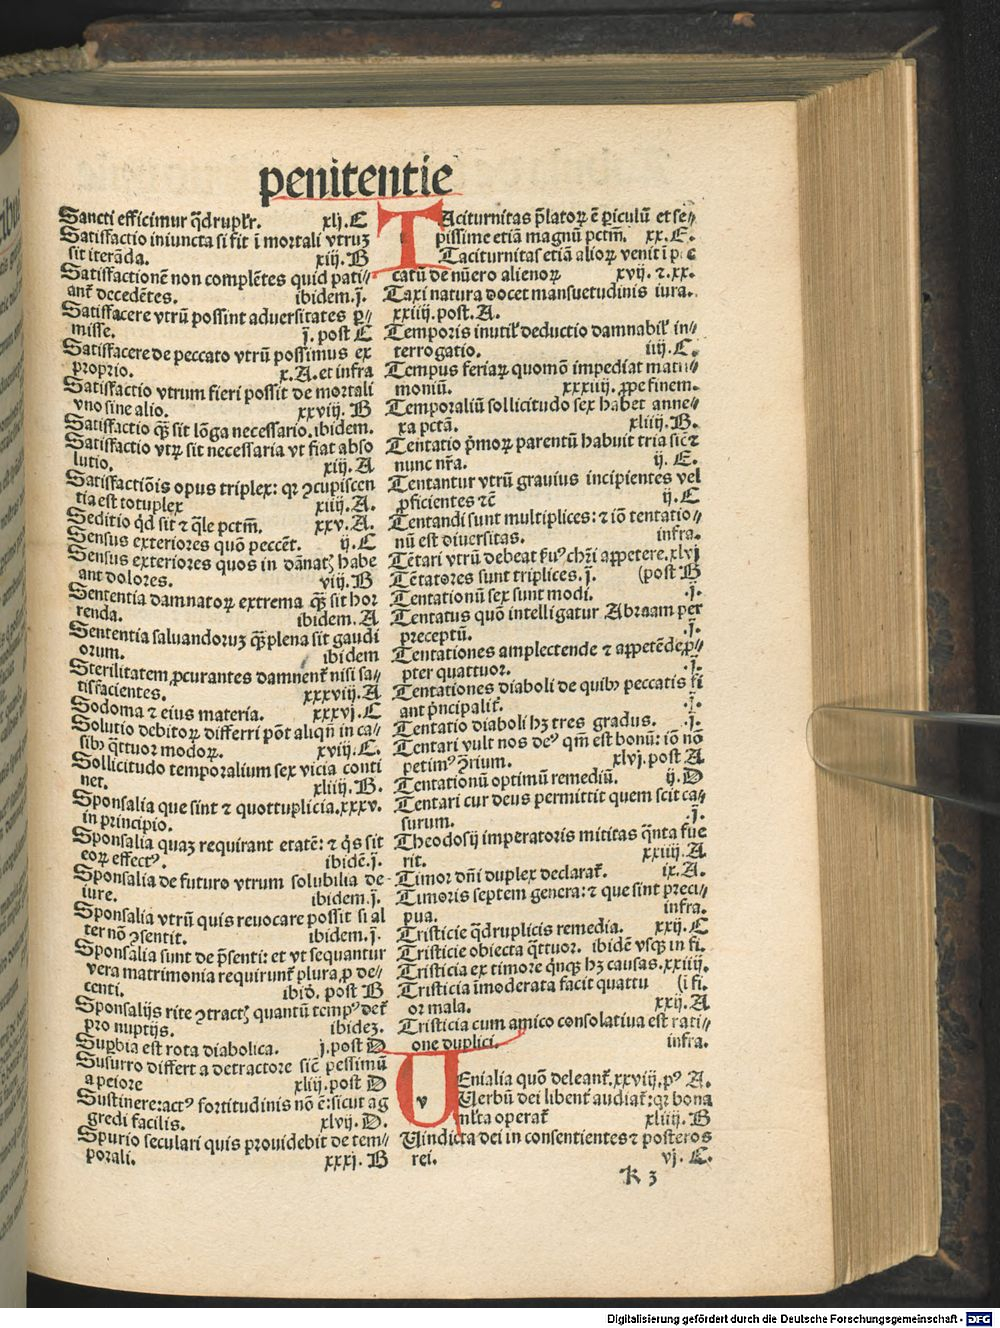 penitentie
Sancti efficimur q̄drupl'r. xlj. C
Satisfactio iniuncta si fit ī mortali vtruꝫ
sit iterāda. xiij. B
Satisfactionē non complētes quid pati⸗
ant̄ decedētes. ibidem. j.
Satisfacere vtrū possint aduersitates ꝑ⸗
misse. j. post C
Satisfacere de peccato vtrū possimus ex
proprio. x. A. et infra
Satisfactio vtrum fieri possit de mortali
vno sine alio. xxviij. B
Satisfactio q̄ꝫ sit lōga necessario. ibidem.
Satisfactio vtꝝ sit necessaria vt fiat abso
lutio. xiij. A
Satisfactiōis opus triplex: qꝛ ꝯcupiscen
tia est totuplex xiiij. A.
Seditio q̄d sit ⁊ q̄le pctm̄. xxv. A.
Sensus exteriores quō peccēt. ij. C
Sensus exteriores quos in dānatꝫ habe
ant dolores. viij. B
Sententia damnatoꝝ extrema q̄ꝫ sit hor
renda. ibidem. A
Sententia saluandoruꝫ q̄ꝫ plena sit gaudi
orum. ibidem
Sterilitatem ꝓcurantes damnent̄ nisi sa⸗
tisfacientes. xxxviij. A
Sodoma ⁊ eius materia. xxxvj. C
Solutio debitoꝝ differri pōt aliqn̄ in ca⸗
sibꝫ q̄ttuor modoꝝ. xviij. C.
Sollicitudo temporalium sex vicia conti
net. xliiij. B.
Sponsalia que sint ⁊ quottuplicia. xxxv.
in principio.
Sponsalia quaꝫ requirant etatē: ⁊ q̄s sit
eoꝝ effectꝰ. ibidē. j.
Sponsalia de futuro vtrum solubilia de⸗
iure. ibidem. j.
Sponsalia vtrū quis reuocare possit si al
ter nō ꝯsentit. ibidem. j.
Sponsalia sunt de p̄senti: et vt sequantur
vera matrimonia requirunt̄ plura ꝓ de⸗
centi. ibid. post B
Sponsalijs rite ꝯtractꝫ quantū tempꝰ det̄
pro nuptijs. ibideꝫ.
Suꝑbia est rota diabolica. j. post D
Susurro differt a detractore sic̄ pessimū
a peiore xliij. post D
Sustinere: actꝰ fortitudinis nō ē: sicut ag
gredi facilis. xlvij. D.
Spurio seculari quis prouidebit de tem⸗
porali. xxxj. B
TAciturnitas p̄latoꝝ ē ꝑiculū et se⸗
pissime etiā magnū pctm̄. xx. E.
Taciturnitas etiā alioꝝ venit ī pec
catū de nūero alienoꝝ xvij. ⁊. xx.
Taxi natura docet mansuetudinis iura.
xxiij. post. A.
Temporis inutil' deductio damnabil' in⸗
terrogatio. iij. C.
Tempus feriaꝝ quomō impediat matri⸗
moniū. xxxiiij. ꝓpe finem.
Temporaliū sollicitudo sex habet anne⸗
xa pctā. xliiij. B.
Tentatio p̄moꝝ parentū habuit tria sic ⁊
nunc nr̄a. ij. E.
Tentantur vtrū grauius incipientes vel
ꝓficientes ⁊c̄ ij. C
Tentandi sunt multiplices: ⁊ iō tentatio⸗
nū est diuersitas. infra.
Tētari vtrū debeat ẜuꝰ chr̄i appetere. xlvj
Tētatores sunt triplices. j. (post B
Tentationū sex sunt modi. .j.
Tentatus quō intelligatur Abraam per
preceptū. .j.
Tentationes amplectende ⁊ appetēde ꝓ⸗
pter quattuor. .j.
Tentationes diaboli de quibꝫ peccatis fi
ant p̄ncipalit̄. .j.
Tentatio diaboli hꝫ tres gradus. .j.
Tentari vult nos deꝰ qm̄ est bonū: iō nō
petimꝰ ꝯrium. xlvj. post A
Tentationū optimū remediū. ij. D
Tentari cur deus permittit quem scit ca⸗
surum. .j.
Theodosij imperatoris mititas q̄nta fue
rit. xxiij. A
Timor dn̄i duplex declarat̄. ix. A.
Timoris septem genera: ⁊ que sint preci⸗
pua. infra.
Tristicie q̄druplicis remedia. xxij. C
Tristicie obiecta q̄ttuor. ibidē vsqꝫ in fi.
Tristicia ex timore q̄nqꝫ hꝫ causas. xxiij.
Tristicia īmoderata facit quattu (i fi.
or mala. xxij. A
Tristicia cum amico consolatiua est rati⸗
one duplici. infra.
VEnialia quō deleant̄. xxviij. pꝰ A.
Verbū dei libent̄ audiat̄: qꝛ bona
ml̄ta operat̄ xliiij. B
Vindicta dei in consentientes ⁊ posteros
rei. vj. C.
K 3
Digitalisierung gefördert durch die Deutsche Forschungsgemeinschaft - DFG